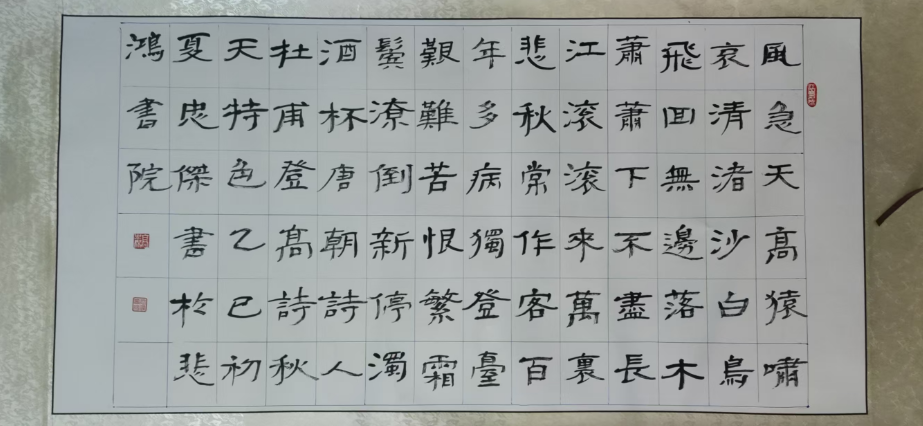 風急天高猿嘯
哀清渚沙白鳥
飛回無邊落木
蕭蕭下不盡長
江滾滾來萬裏
悲秋常作客百
年多病獨登臺
艱難苦恨繁霜
鬢潦倒新停濁
酒杯唐朝詩人
杜甫登高詩秋
天特色乙巳初
夏忠傑書於悲
鴻書院